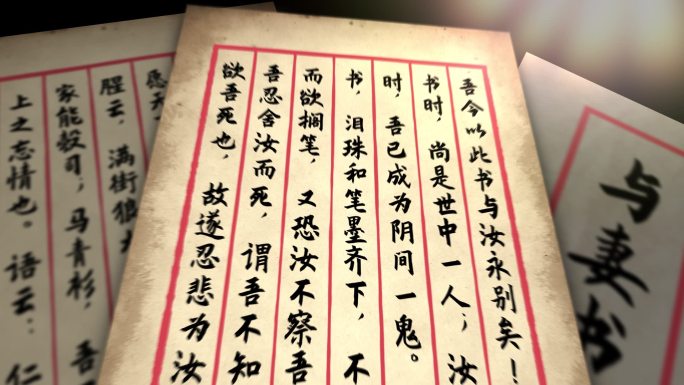 与妻书
吾今以此书与汝永别矣！
书时，尚是世中一人；汝
时，吾已成为阴间一鬼。
书，泪珠和笔墨齐下，不
而欲搁笔，又恐汝不察吾
吾忍舍汝而死，谓吾不知
欲吾死也，故遂忍悲为汝
愿
腥云，满街狼
家能彀司；马青杉，吾
上之忘情也。语云：仁